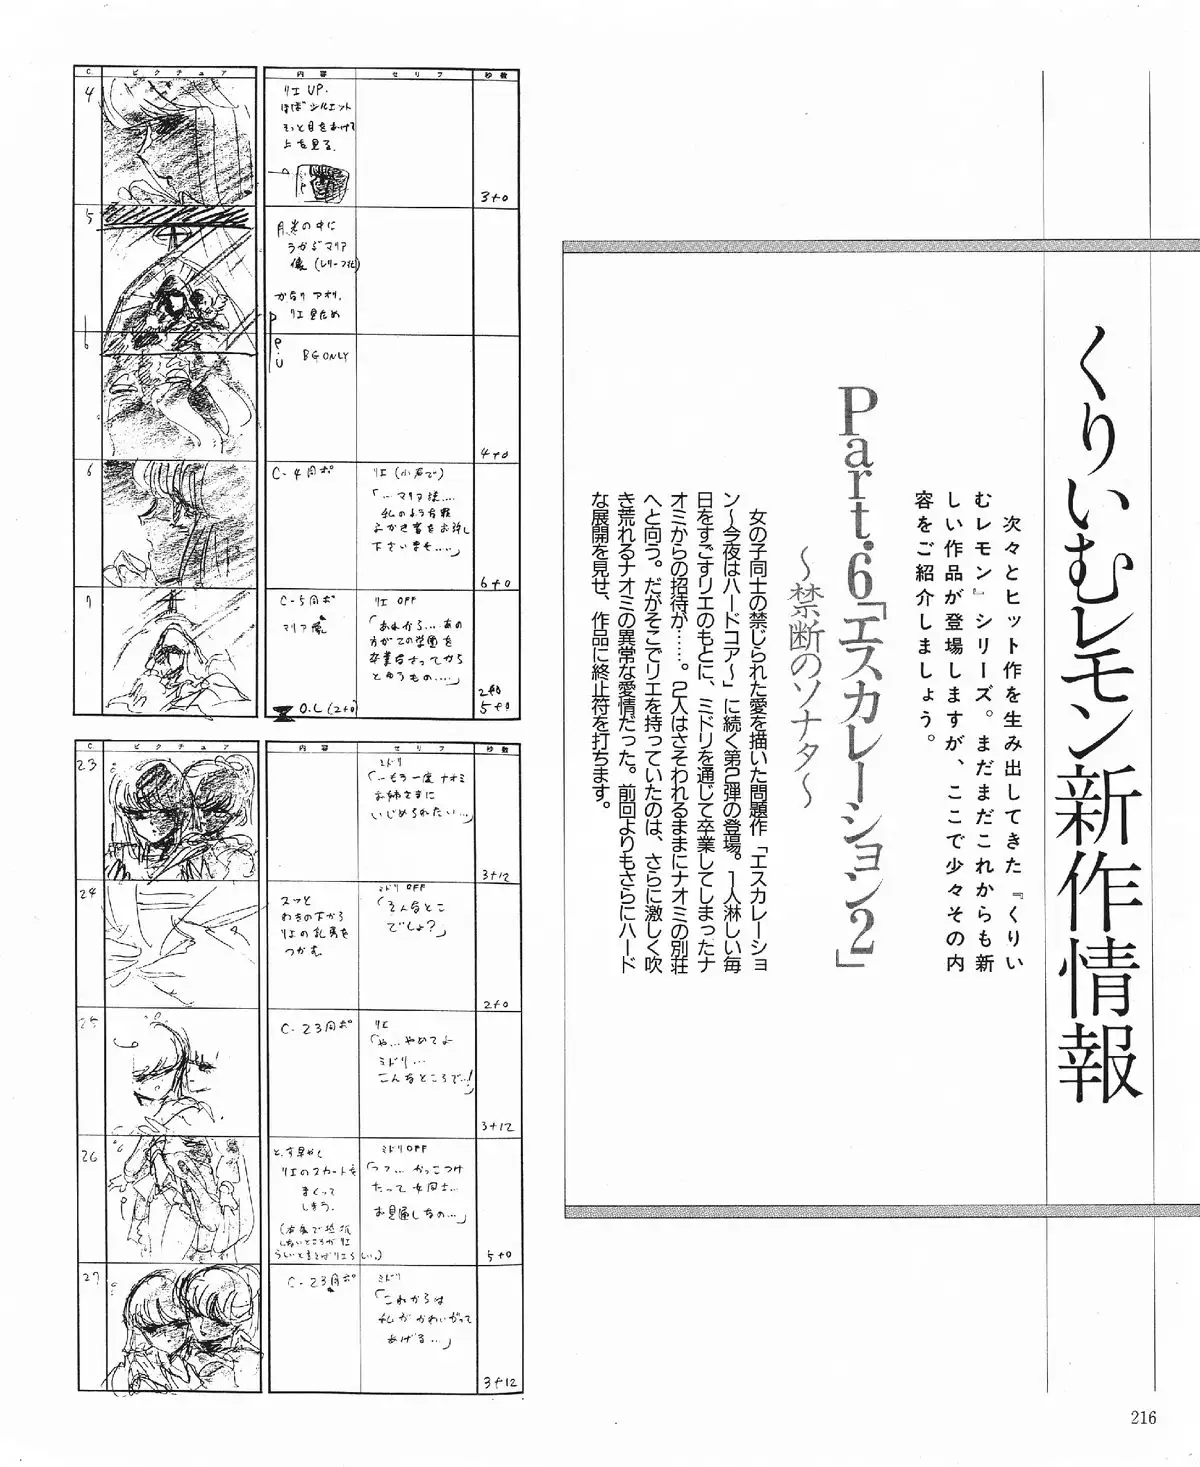 くりいむレモン新作情報
次々とヒット作を生み出してきた『くりい
むレモン』シリーズ。まだまだこれからも新
しい作品が登場しますが、ここで少々その内
容をご紹介しましょう。
Part.6「エスカレーション2」
〜禁断のソナタ〜
女の子同士の禁じられた愛を描いた問題作「エスカレーショ
ン〜今夜はハードコア〜」に続く第2弾の登場。1人淋しい毎
日をすごすリエのもとに、ミドリを通じて卒業してしまったナ
オミからの招待が……。2人はさそわれるままにナオミの別荘
へと向う。だがそこでリエを持っていたのは、さらに激しく吹
き荒れるナオミの異常な愛情だった。前回よりもさらにハード
な展開を見せ、作品に終止符を打ちます。
C. ピクチュア 内容 セリフ 秒数
4
リエ UP.
ほぼシルエット
そっと目をあけて
上を見る.
3+0
5
月光の中に
うかぶマリア
像(レリーフ状)
かなりアオリ.
リエ見ため
6
P.U BG ONLY
4+0
6
C-4同ポ
リエ(小声で)
「…マリア様….
私のような罪
ふかき者をお許し
下さいませ….」
6+0
7
C-5同ポ
マリア像
リエ OFF
「あれから…あの
方がこの学園を
卒業なさってから
というもの….」
O.L(2+0)
2+0
5+0
C. ピクチュア 内容 セリフ 秒数
23
ミドリ
「…もう一度 ナオミ
お姉さまに
いじめられたい…」
3+12
24
スッと
わきの下から
リエの乳房を
つかむ
ミドリOFF
「そんなとこ
でしょ?」
2+0
25
C-23同ポ
リエ
「や…やめてよ
ミドリ…
こんなところで…!」
3+12
26
とす早やく
リエのスカートを
まくって
しまう.
ミドリOFF
「フフ…かっこつけ
たって女同士…
お見通しなの…」
5+0
27
C-23同ポ
ミドリ
「これからは
私がかわいがって
あげる…」
3+12
216